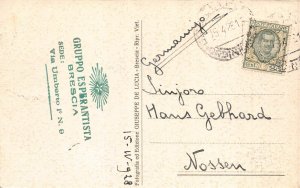 GRUPPO ESPERANTISTA
BRESCIA
SEDE:
Via Umberto P. N. 9
Fotografia ed Edizione GIUSEPPE DE LUCIA - Brescia - Ripr. Viet.
15-IV-928
Germanujo
Sinjoro
Hans Gebhard
Nossen